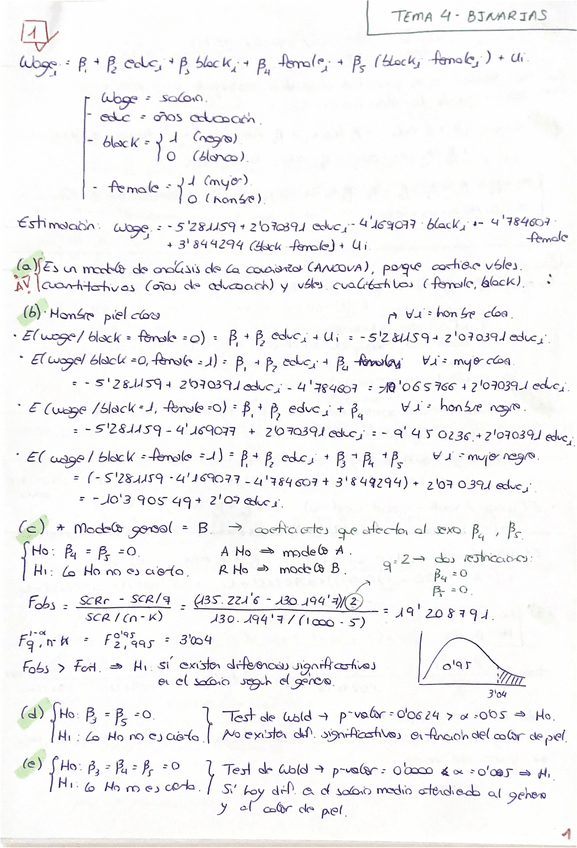 TEMA 4 - BINARIAS
1
Wage_i = β1 + β2 educ_i + β3 black_i + β4 female_i + β5 (black_i female_i) + u_i
- Wage = salario.
- educ = años educación.
- black = { 1 (negro)
0 (blanco).
- female = { 1 (mujer)
0 (hombre).
Estimación: wage_i = -5'281159 + 2'070391 educ_i - 4'169077 · black_i - 4'784607 · female
+ 3'844294 (black female) + u_i
(a) Es un modelo de análisis de la covarianza (ANCOVA), porque contiene vbles.
cuantitativas (años de educación) y vbles cualitativas (female, black).
(b) · Hombre piel clara
∀i = hombre claro.
· E(wage / black = female = 0) = β1 + β2 educ_i + u_i = -5'281159 + 2'070391 educ_i
· E(wage / black=0, female=1) = β1 + β2 educ_i + β4 ∀i = mujer clara
= -5'281159 + 2'070391 educ_i - 4'784607 = -10'065766 + 2'070391 educ_i.
· E(wage / black=1, female=0) = β1 + β2 educ_i + β4 ∀i = hombre negro.
= -5'281159 - 4'169077 + 2'070391 educ_i = -9'450236 + 2'070391 educ_i.
· E(wage / black=female=1) = β1 + β2 educ_i + β3 + β4 + β5 ∀i = mujer negra.
= (-5'281159 - 4'169077 - 4'784607 + 3'844294) + 2'070391 educ_i
= -10'390549 + 2'07 educ_i.
(c) * Modelo general = B. → coeficientes que afectan al sexo: β4, β5.
{ H0: β4 = β5 = 0. A H0 ⇒ modelo A. q=2 → dos restricciones:
H1: La H0 no es cierta. R H0 ⇒ modelo B. β4 = 0
β5 = 0.
Fobs = SCRr - SCR/q / SCR/(n-k) = (135.221'6 - 130.194'7)/2 / 130.194'7/(1000-5) = 19'208791.
F^{1-α}_{q, n-k} = F^{0'95}_{2, 995} = 3'004
Fobs > Fcrit. ⇒ H1. Sí existen diferencias significativas
en el salario según el género.
0'95
3'04
(d) { H0: β3 = β5 = 0. } Test de Wald → p-valor = 0'0624 > α = 0'05 ⇒ H0.
H1: La H0 no es cierta. No existen dif. significativas en función del color de piel.
(e) { H0: β3 = β4 = β5 = 0 } Test de Wald → p-valor = 0'0000 < α = 0'005 ⇒ H1.
H1: La H0 no es cierta. Sí hay dif. en el salario medio atendiendo al género
y al color de piel.
1